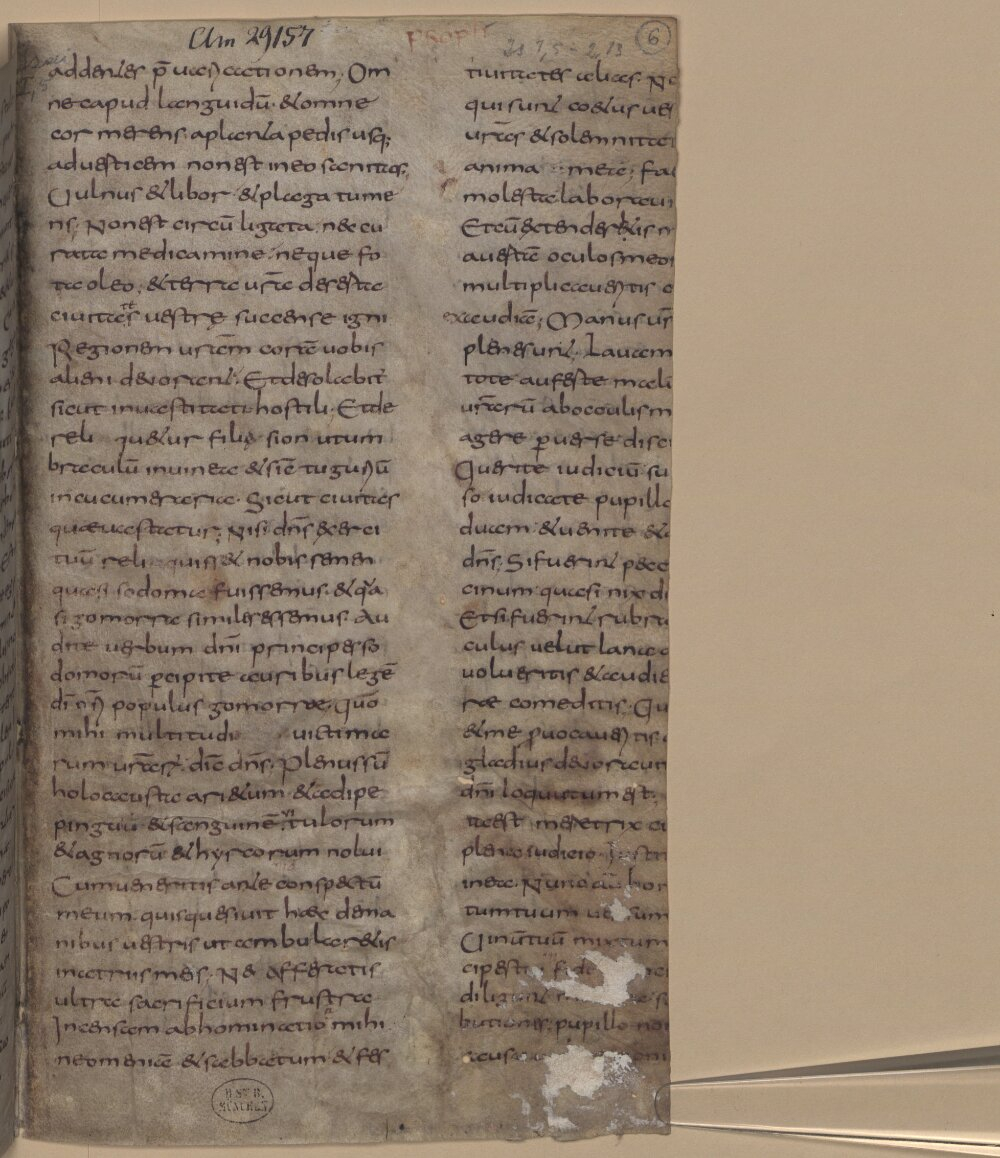 Clm 29157
6
addentes p̄uaricationem, Om
ne capud languidū & omne
cor merens a planta pedis usq;
ad uerticem non est in eo sanitas,
Uulnus & libor & plaga tume
ns, Non est circū ligata nec cu
rata medicamine neque fo
ta oleo, & terra ur̄a deserta
ciuitates uestrę succense igni
Regionem ur̄am coram uobis
alieni deuorant. Et desolabit
sicut in uastitate hostili. Et de
reli quetur filię sion ut um
braculū in uinea & sic̄ tuguriū
in cucumerario. Sicut ciuitas
quæ uastatur, Nisi dn̄s exerci
tuū reli quisset nobis semen
quasi sodoma fuissemus, & q̄a
si gomorra similes essemus. Au
dite uerbum dn̄i principes so
domorū percipite auribus legē
dī nr̄i populus gomorrae, quo
mihi multitudi uictima
rum ur̄arū, dic̄ dn̄s, Plenus sū
holocausta arietum & adipe
pinguiū & sanguinē uitulorum
& agnorū & hyrcorum nolui
Cum ueneritis ante conspectū
meum quis quesiuit haec de ma
nibus uestris ut ambularetis
in atriis meis, Ne afferatis
ultra sacrificium frustra
Incensam abhominatio mihi
neomenia & sabbatum & fes
tiuitates alias. N
qui sunt coetus ues
ur̄as & solemnitat
anima mea, fa
molesta laboraui
Et cū extenderitis m
auertā oculos meos
multiplicaueritis o
exaudiā, Manus ur̄
plene sunt, Lauam
tote auferte mali
ur̄arū ab oculis m
agere peruerse disc
Querite iudiciū su
so iudicate pupillo
duam & uenite &
dn̄s, Si fuerint pecc
cinum quasi nix d
Et si fuerint rubra
culus uelut lana
uolueritis & audie
rae comeditis, Qu
& me prouocaueritis
gladius deuorauit
dn̄i loquutum est,
ta est meretrix ci
plena iudicio
in ea, Nunc au hom
tum tuum uersum
Uinū tuū mixtum
cipes tui
diligunt
butiones, pupillo non
causa
B. ST. B.
MÜNCHEN